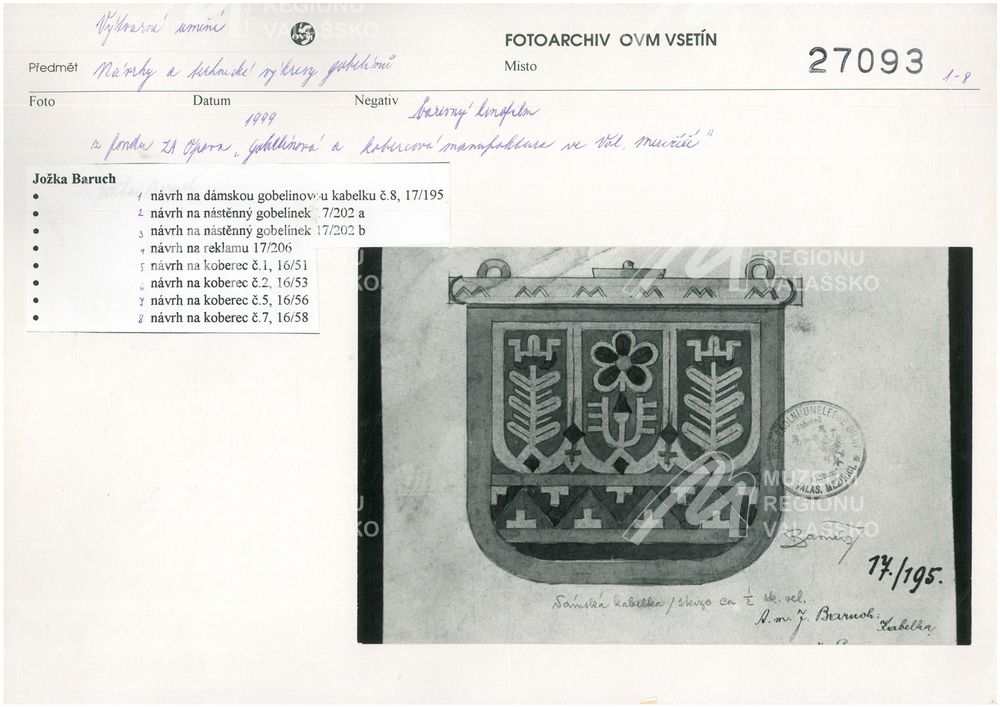 Výtvarné umění
OVM
FOTOARCHIV OVM VSETÍN
27093
1-8
Předmět Návrhy a technické výkresy gobelínů
Místo
Foto Datum Negativ
1999 barevný kinofilm
z fondu ZA Opava „Gobelínová a kobercová manufaktura ve Val. Meziříčí"
Jožka Baruch
• 1 návrh na dámskou gobelínovou kabelku č.8, 17/195
• 2 návrh na nástěnný gobelínek 17/202 a
• 3 návrh na nástěnný gobelínek 17/202 b
• 4 návrh na reklamu 17/206
• 5 návrh na koberec č.1, 16/51
• 6 návrh na koberec č.2, 16/53
• 7 návrh na koberec č.5, 16/56
• 8 návrh na koberec č.7, 16/58
VALAS. MEZIŘÍČÍ
Baruch
17./195.
Dámská kabelka / skizze ca 1/2 sk. vel.
A. m. J. Baruch:
Kabelka
MUZEUM
REGIONU
VALAŠSKO